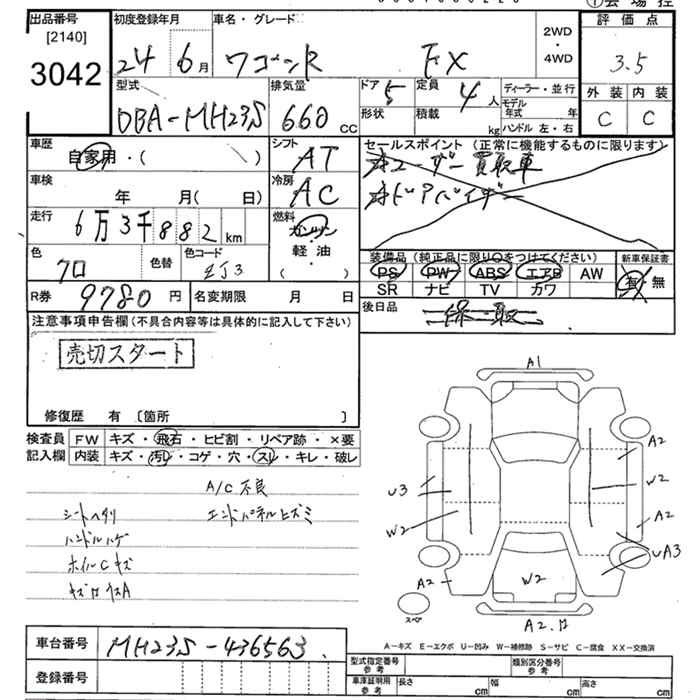 出品番号 初度登録年月 車名・グレード 2WD・4WD 評価点
[2140]
3042 24 6月 ワゴンR FX 3.5
型式 排気量 ドア 5 定員 4人 ディーラー・並行 外装 内装
DBA-MH23S 660cc 形状 積載 kg モデル年式 年 C C
ハンドル 左・右
車歴 シフト セールスポイント(正常に機能するものに限ります)
自家用・( ) AT 買取車
車検 冷房 ドアバイザー
年 月( 日) AC
走行 燃料
6万3千882km ガソリン
色 色替 色コード ・軽油・
クロ ZJ3 ( )
装備品(純正品に限り○をつけてください) 新車保証書
PS PW ABS エアB AW 有・無
SR ナビ TV カワ
R券 9780円 名変期限 月 日
後日品
注意事項申告欄(不具合内容等は具体的に記入して下さい)
売切スタート
修復歴 有 〔箇所 〕
検査員 FW キズ・飛石・ヒビ割・リペア跡・×要
記入欄 内装 キズ・汚レ・コゲ・穴・スレ・キレ・破レ
A/C不良
シートヘタリ エンドパネルヒズミ
ハンドルハゲ
ホイルCキズ
A1
A2
U3 W2
W2 A2
UA3
A2 W2
スペア
車台番号 MH23S-436563
登録番号
A-キズ E-エクボ U-凹み W-補修跡 S-サビ C-腐食 XX-交換済
型式指定番号 参考 類別区分番号 参考
車庫証明用 参考 長さ cm 幅 cm 高さ cm